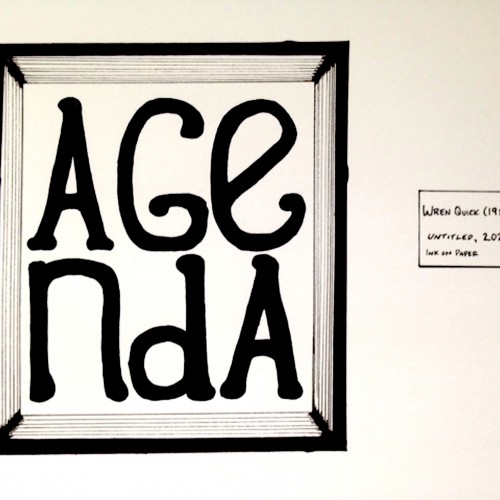 AGe
ndA
WREN QUICK (19
UNTITLED, 202
INK ON PAPER